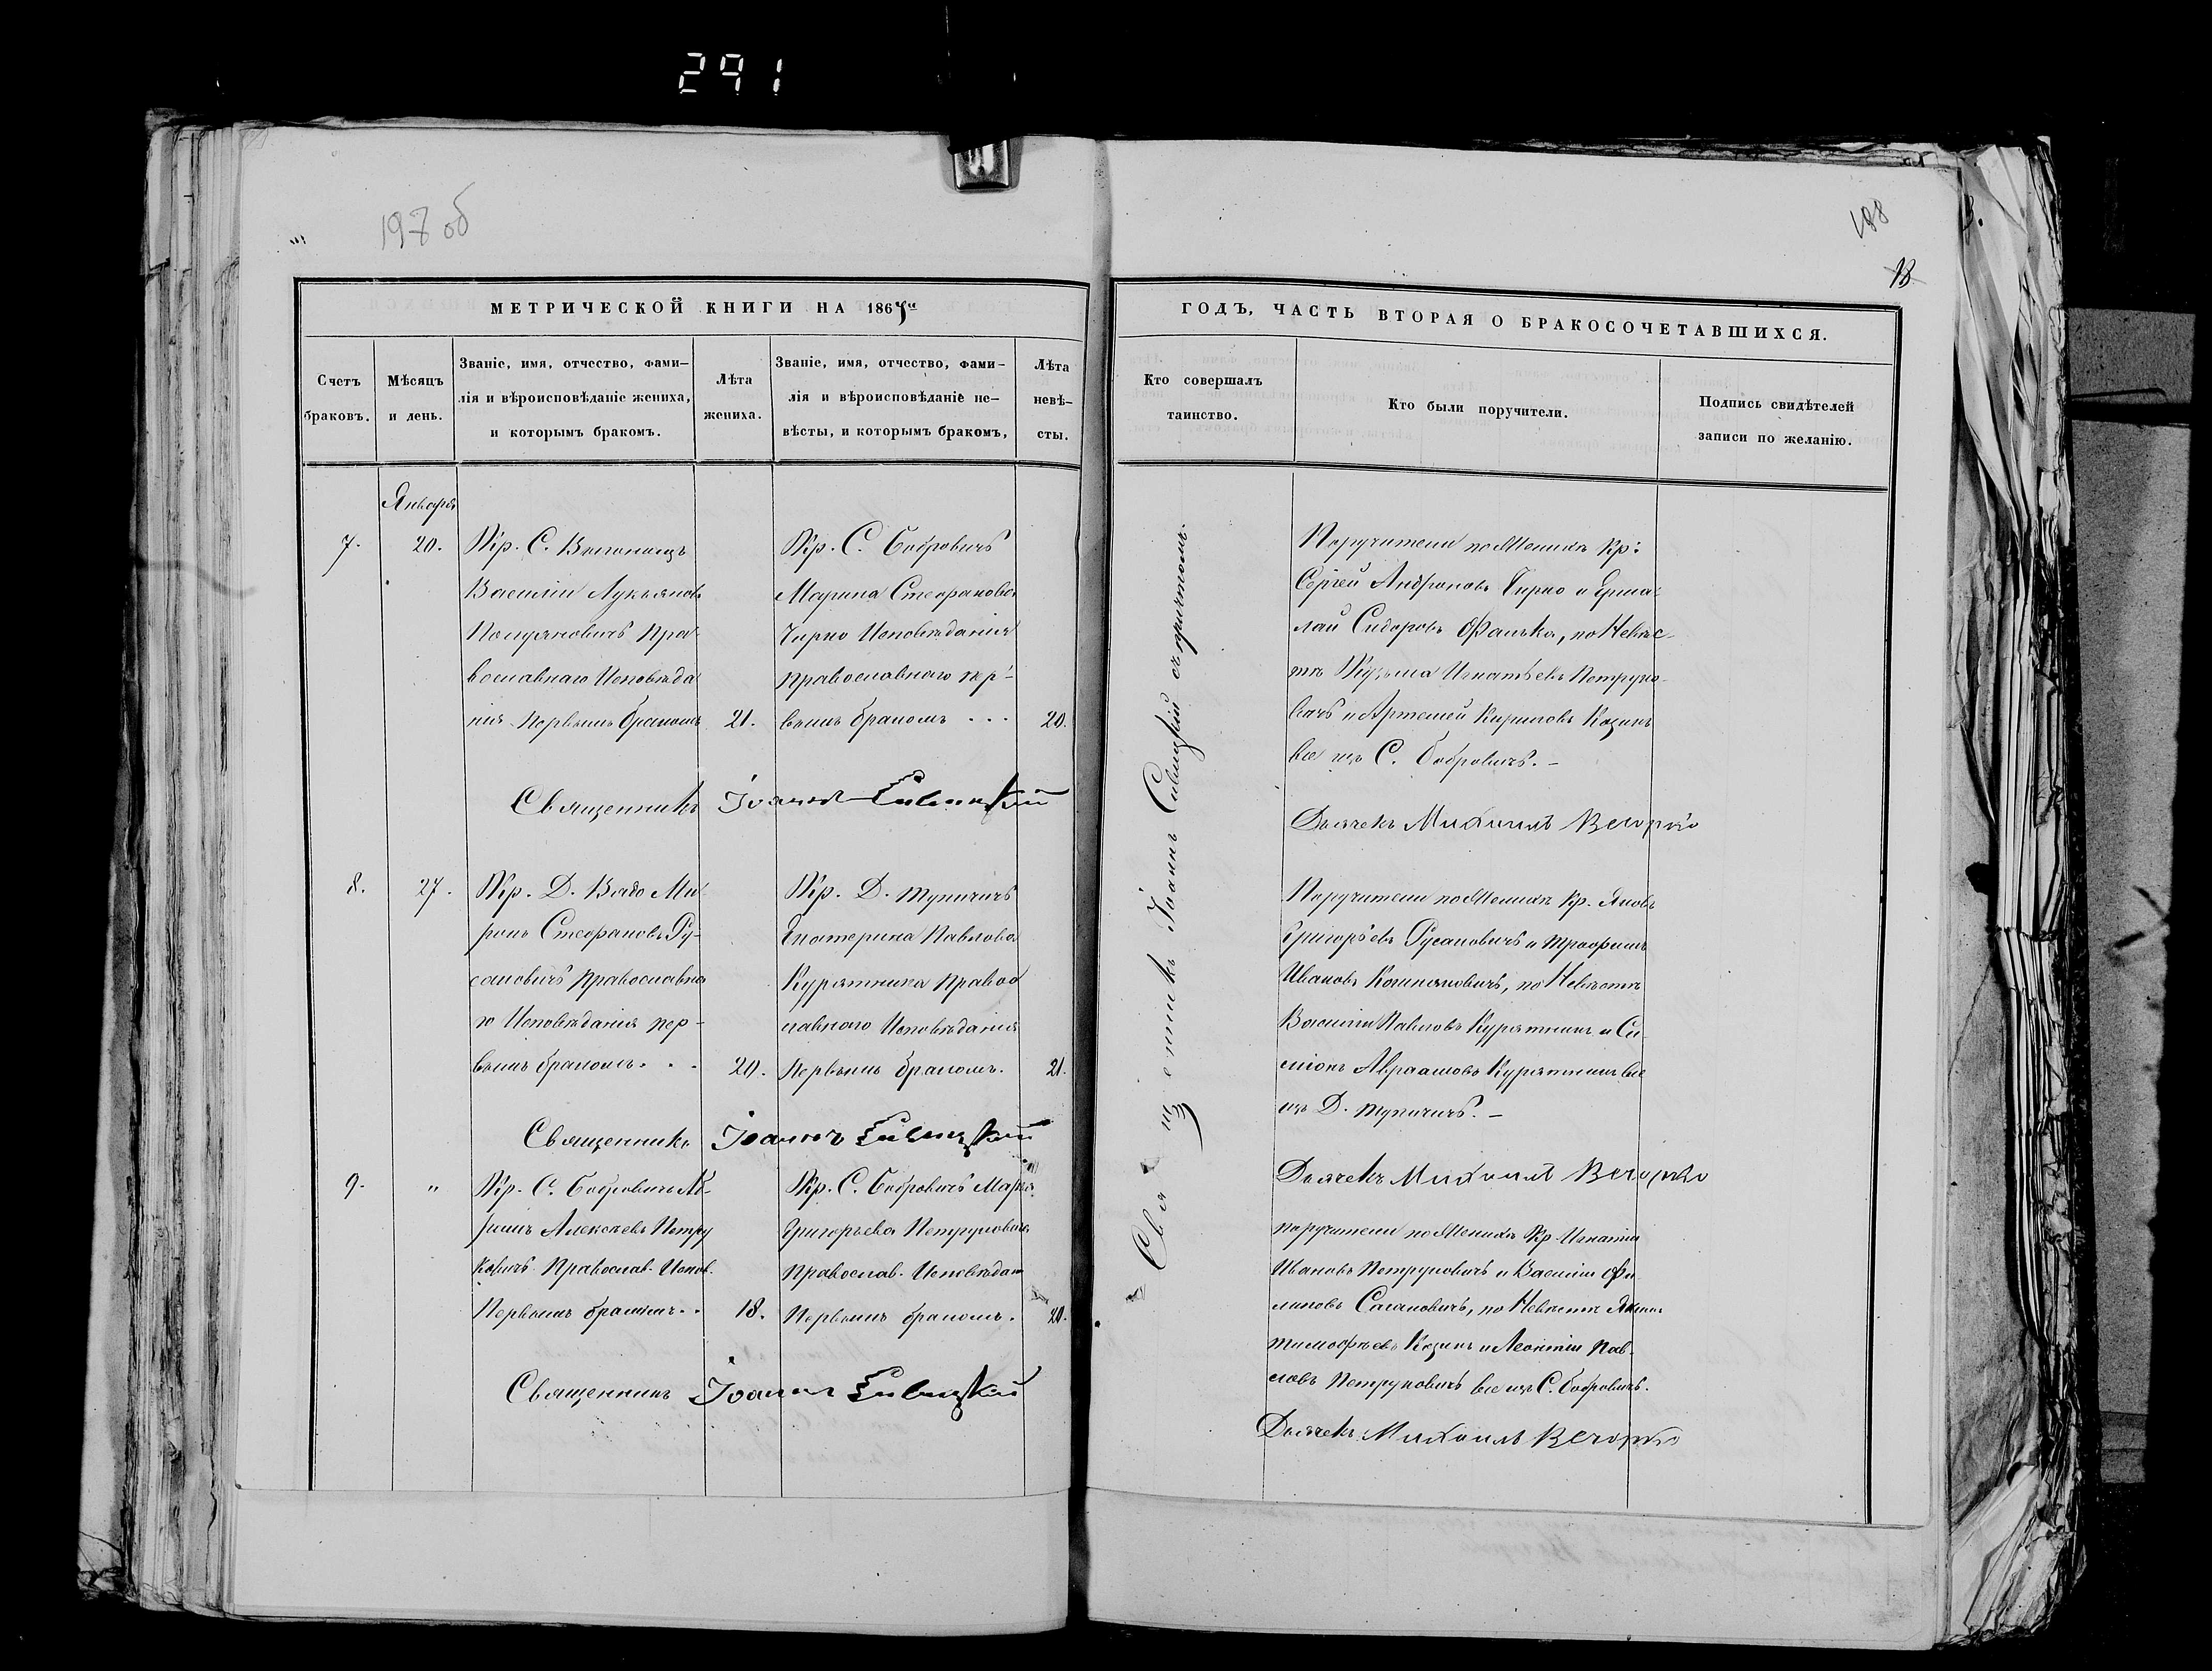 291
197 об
188
18
МЕТРИЧЕСКОЙ КНИГИ НА 1867й
ГОДЪ, ЧАСТЬ ВТОРАЯ О БРАКОСОЧЕТАВШИХСЯ.
Счетъ
браковъ.
Мѣсяцъ
и день.
Званіе, имя, отчество, фами-
лія и вѣроисповѣданіе жениха,
и которымъ бракомъ.
Лѣта
жениха.
Званіе, имя, отчество, фами-
лія и вѣроисповѣданіе не-
вѣсты, и которымъ бракомъ,
Лѣта
невѣ-
сты.
Кто совершалъ
таинство.
Кто были поручители.
Подпись свидѣтелей
записи по желанію.
Января
7.
20.
Кр. С.
Василій Лукьяновъ
Пра-
вославнаго Исповѣда
нія Первымъ бракомъ
21.
Кр. С. Бобровичъ
Марина Стефановна
Чирко Исповѣданія
православнаго пер-
вымъ бракомъ . . .
20.
Священникъ Іоаннъ Сивицкій
Поручители по Женихѣ Кр:
Сергей Андроновъ Чирко и Ерма-
лай Сидоровъ Фалька, по Невѣс-
тѣ Кузьма Игнатьевъ Петруко-
вичъ и Артемей Кириловъ Козик
все изъ С. Бобровичъ. -
Дьячекъ Михаилъ Вечорко
8.
27.
Кр. Д. Вядо Ми-
ронъ Стефановъ Ру-
сановичъ Православна
го Исповѣданія пер-
вымъ бракомъ. . .
20.
Кр. Д. Тупичичъ
Екатерина Павлова
Курятника Правос
лавнаго Исповѣданія
Первымъ бракомъ.
21.
Священникъ Іоаннъ Сивицкій
Поручители по Женихѣ Кр. Яковъ
Григорьевъ Русановичъ и Трофимъ
Ивановъ по Невѣстѣ
Василій Павловъ Курятникъ и Си-
міонъ Авраамовъ Курятникъ все
изъ Д. Тупичичъ. -
Дьячекъ Михаилъ Вечорко
9.
"
Кр. С. Бобровичъ
Алексѣевъ Петру
ковичъ Православ. Испов.
Первымъ бракомъ. .
18.
Кр. С. Бобровичъ Марія
Григорьева Петруковича
Православ. Исповѣдан
Первымъ бракомъ.
20.
Священникъ Іоаннъ Сивицкій
поручители по Женихѣ Кр. Игнатій
Ивановъ Петруковичъ и Василій Фи-
липовъ Сагановичъ, по Невѣстѣ
Тимофѣевъ Козикъ и Леонтій Пав-
ловъ Петруковичъ все изъ С. Бобровичъ.
Дьячекъ Михаилъ Вечорко
Священникъ Іоаннъ Сивицкій съ причтомъ.